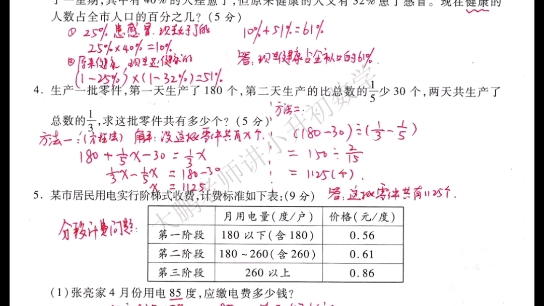 了一星期,其中有40%的人痊愈了,但原来健康的人又有32%患了感冒。现在健康的
人数占全市人口的百分之几?(5分)
10%+51%=61%
25%×40%=10%
(1-25%)×(1-32%)=51%
答:现在健康占全市人口的61%
4. 生产一批零件,第一天生产了180个,第二天生产的比总数的1/5少30个,两天共生产了
总数的1/3,求这批零件共有多少个?(5分)
方法二:
方法一:(方程法) 解:设这批零件共有x个.
(180-30)÷(1/3-1/5)
180+1/5x-30=1/3x
=150÷2/15
1/3x-1/5x=180-30
=1125(个)
x=1125
答:这批零件共有1125个.
5. 某市居民用电实行阶梯式收费,计费标准如下表:(9分)
分段计费问题:
月用电量(度/户) 价格(元/度)
第一阶段 180以下(含180) 0.56
第二阶段 180~260(含260) 0.61
第三阶段 260以上 0.86
(1)张亮家4月份用电85度,应缴电费多少钱?
大鹏老师讲小升初数学